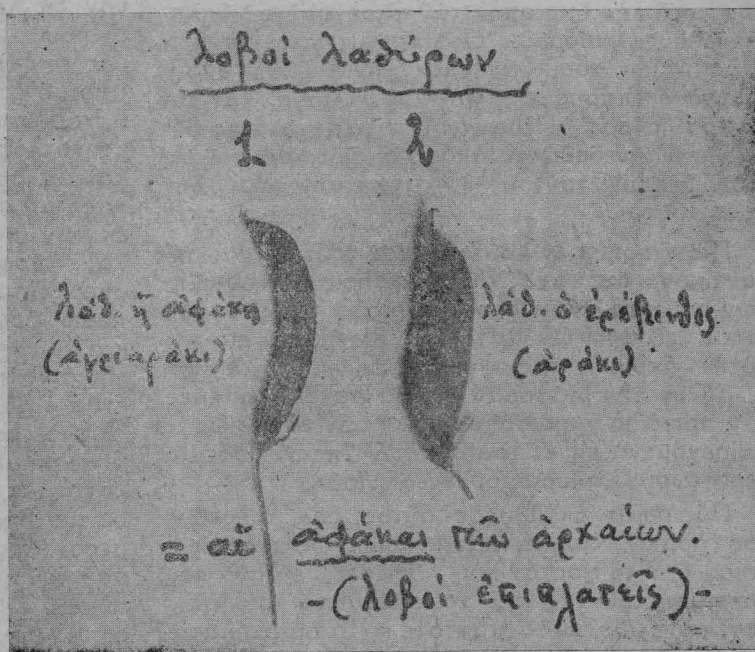 λοβοί λαθύρων
1 2
λάθ. ἡ ἀφάκη
(ἀγριαράκι)
λάθ. ὁ ἐρέβινθος
(ἀράκι)
= αἱ ἀφάκαι τῶν ἀρχαίων.
-(λοβοί ἐπιπλατεῖς)-